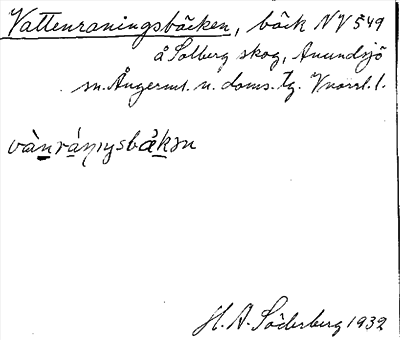 Vattenraningsbäcken, bäck NV 549
å Solberg skog, Anundsjö
sn. Ångerml. n. doms. tg. Vnorrl. l.
vànráŋiŋsbäkən
H. A. Söderberg 1932